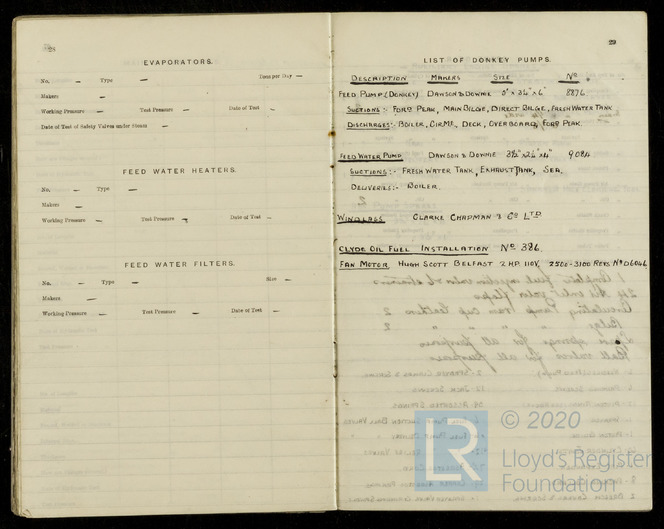 28
EVAPORATORS.
No. — Type — Tons per Day —
Makers —
Working Pressure — Test Pressure — Date of Test —
Date of Test of Safety Valves under Steam —
FEED WATER HEATERS.
No. — Type —
Makers —
Working Pressure — Test Pressure — Date of Test —
FEED WATER FILTERS.
No. — Type — Size —
Makers —
Working Pressure — Test Pressure — Date of Test —
29
LIST OF DONKEY PUMPS.
DESCRIPTION MAKERS SIZE No.
FEED PUMP (DONKEY) DAWSON & DOWNIE 3½" x 6" 8876
SUCTIONS:- FORD PEAK, MAIN BILGE, DIRECT BILGE, FRESH WATER TANK
DISCHARGES:- BOILER, CIRMR, DECK, OVERBOARD, FORD PEAK.
FEED WATER PUMP DAWSON & DOWNIE 3½" x 2½" x 4" 9084
SUCTIONS:- FRESH WATER TANK, EXHAUST TANK, SEA.
DELIVERIES:- BOILER.
WINDLASS CLARKE CHAPMAN & CO LTD.
CLYDE OIL FUEL INSTALLATION No 386.
FAN MOTOR HUGH SCOTT BELFAST 2 HP. 110V. 2500-3100 REVS No D6046
© 2020
LR
Lloyd's Register
Foundation